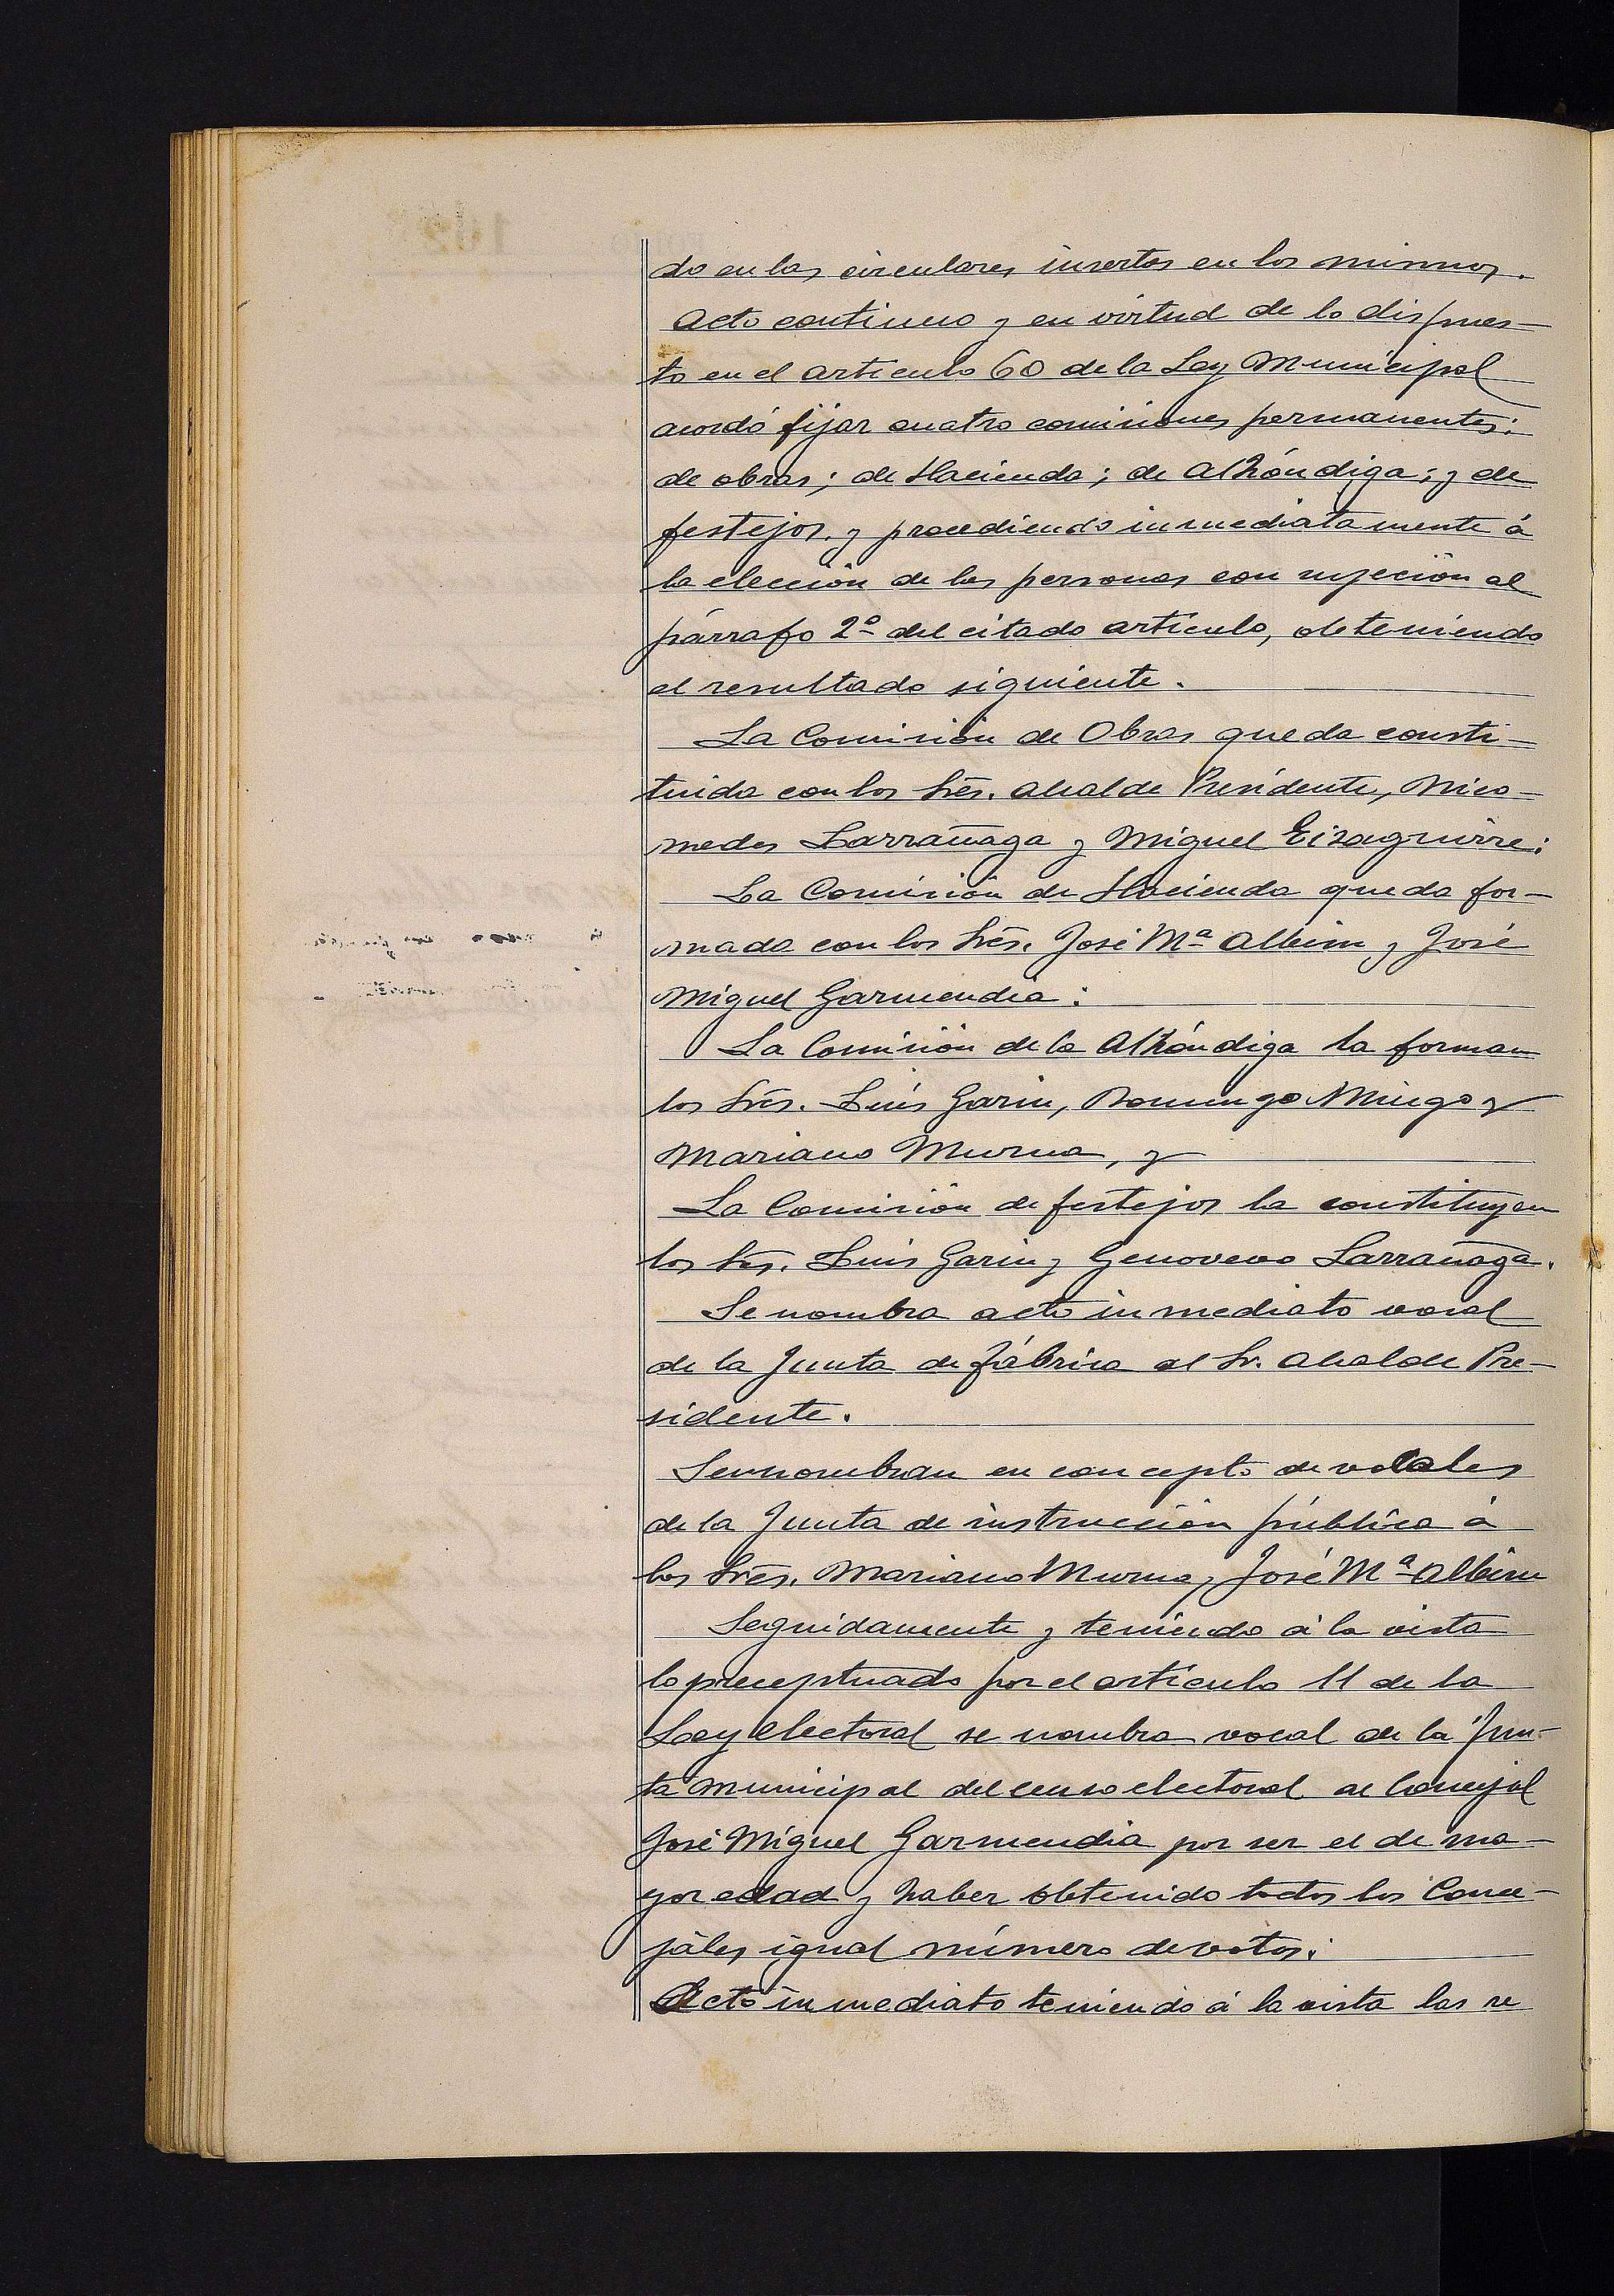 do en las circulares insertas en los mismos.
Acto continuo y en virtud de lo dispues-
to en el articulo 60 de la Ley Municipal
acordó fijar cuatro comisiones permanentes:
de obras; de Hacienda; de Alhóndiga; y de
festejos. y procediendo inmediatamente á
la elección de las personas con sujeción al
párrafo 2º del citado artículo, obteniendo
el resultado siguiente.
La Comisión de Obras queda consti-
tuida con los Srés. Alcalde Presidente, Nico-
medes Larrañaga y Miguel Eizaguirre:
La Comisión de Hacienda queda for-
mada con los Srés. José Mª Albisu y José
Miguel Garmendia:
La Comisión de la Alhóndiga la forman
los Srés. Luis Garin, Domingo Mingo y
Mariano Murua, y
La Comisión de festejos la constituyen
los Srés. Luis Garin y Genoveva Larrañaga.
Se nombra acto inmediato vocal
de la Junta de fábrica al Sr. Alcalde Pre-
sidente.
Se nombran en concepto de vocales
de la Junta de instrucción pública á
los Srés. Mariano Murua y José Mª Albisu
Seguidamente y teniendo á la vista
lo preceptuado por el artículo 11 de la
Ley electoral se nombra vocal de la Jun-
ta municipal del censo electoral al Concejal
José Miguel Garmendia por ser el de ma-
yor edad y haber obtenido todos los Conce-
jáles igual número de votos:
Acto inmediato teniendo á la vista las re